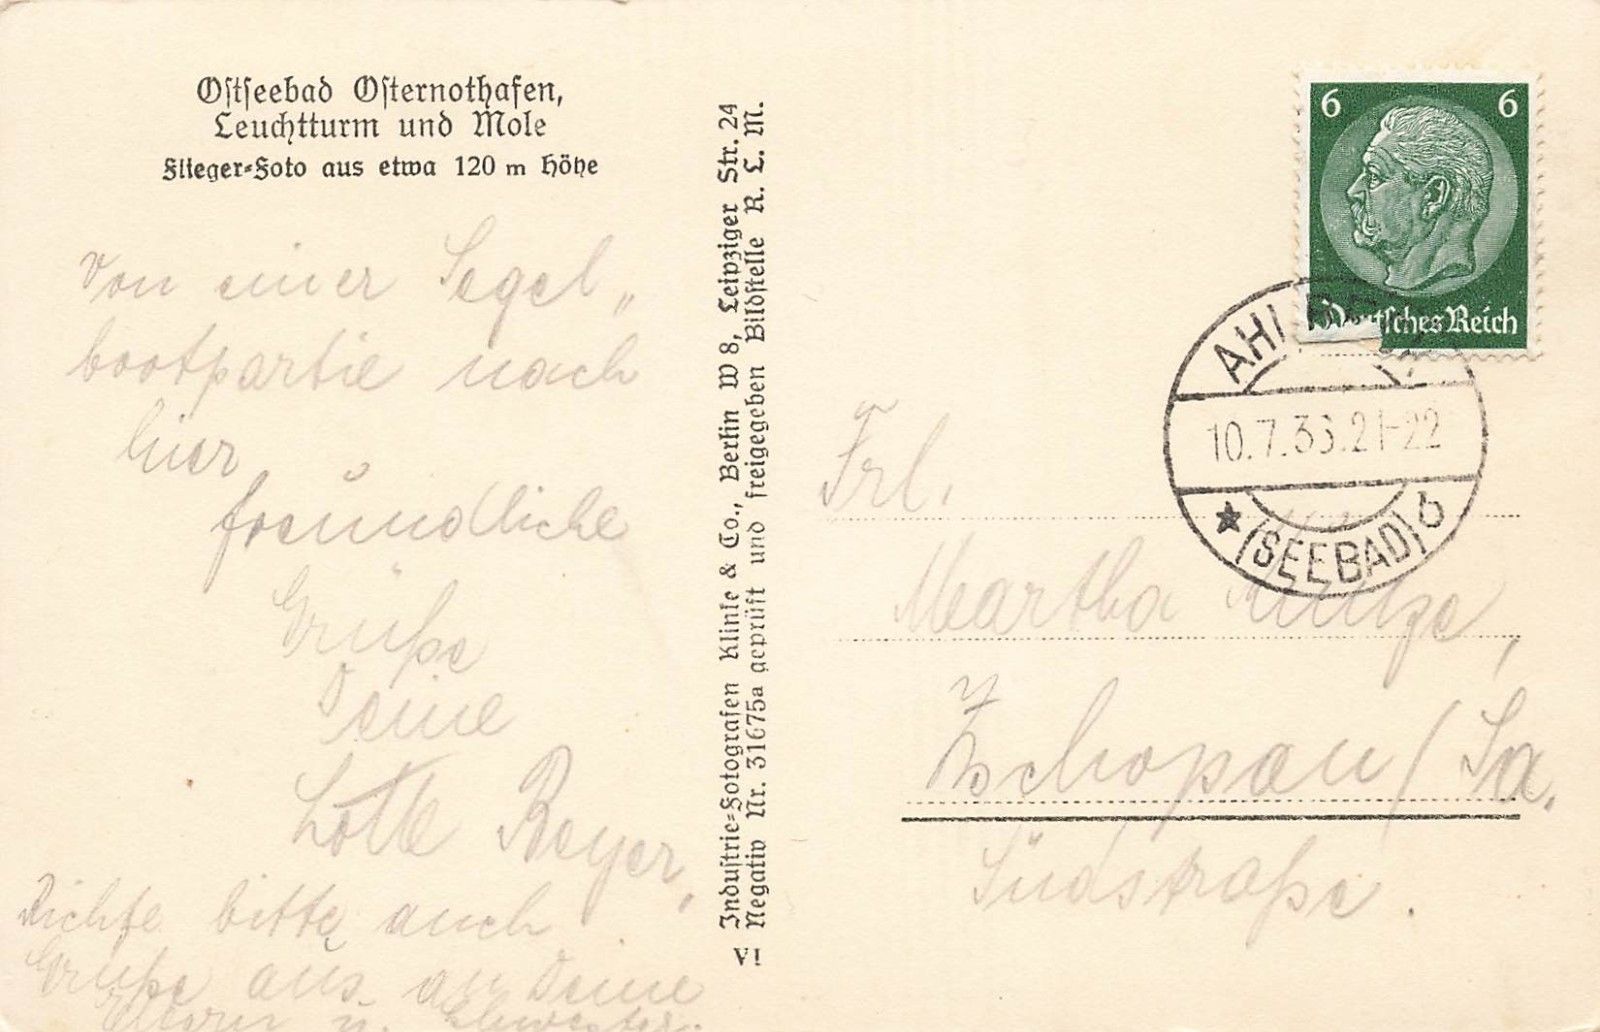 Ostseebad Osternothafen,
Leuchtturm und Mole
Flieger=Foto aus etwa 120 m Höhe
Von einer Segel„
bootpartie nach
hier
freundliche
Grüße
Deine
Lotte Beyer,
Richte bitte auch
Grüße aus an Deine
Eltern u. Schwester.
Industrie=Fotografen Klinke & Co., Berlin W 8, Leipziger Str. 24
Negativ Nr. 31675a geprüft und freigegeben Bildstelle R. L. M.
VI
6 6
Deutsches Reich
AHL
10.7.36.21-22
(SEEBAD) b
Frl.
Martha
Zschopau / Sa.
Südstraße.